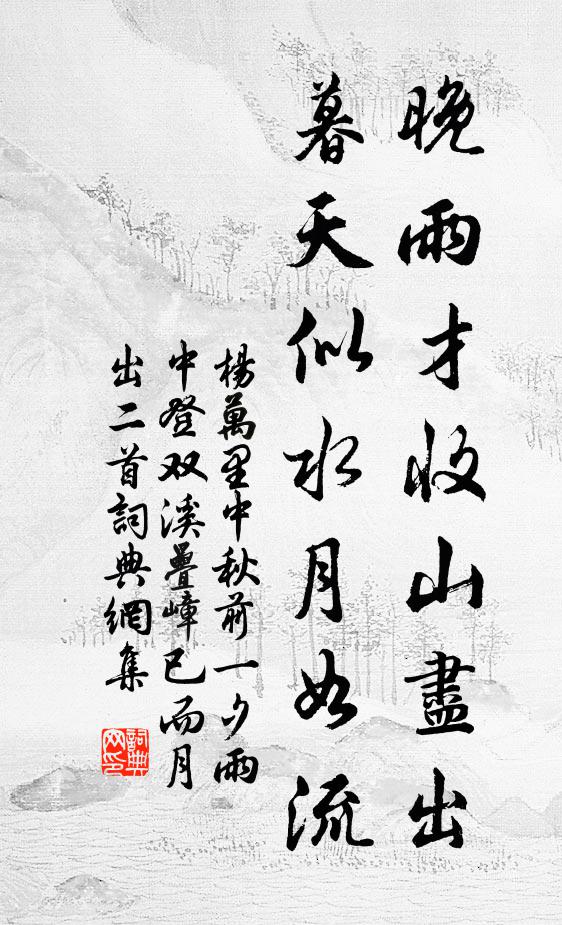 晚雨才收山盡出
暮天似水月如流
楊萬里中秋前一夕雨
中登双溪疊嶂已而月
出二首詞典網集
詞典
网印